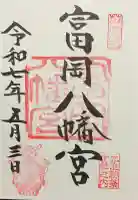 富岡八幡宮
令和七年五月三日